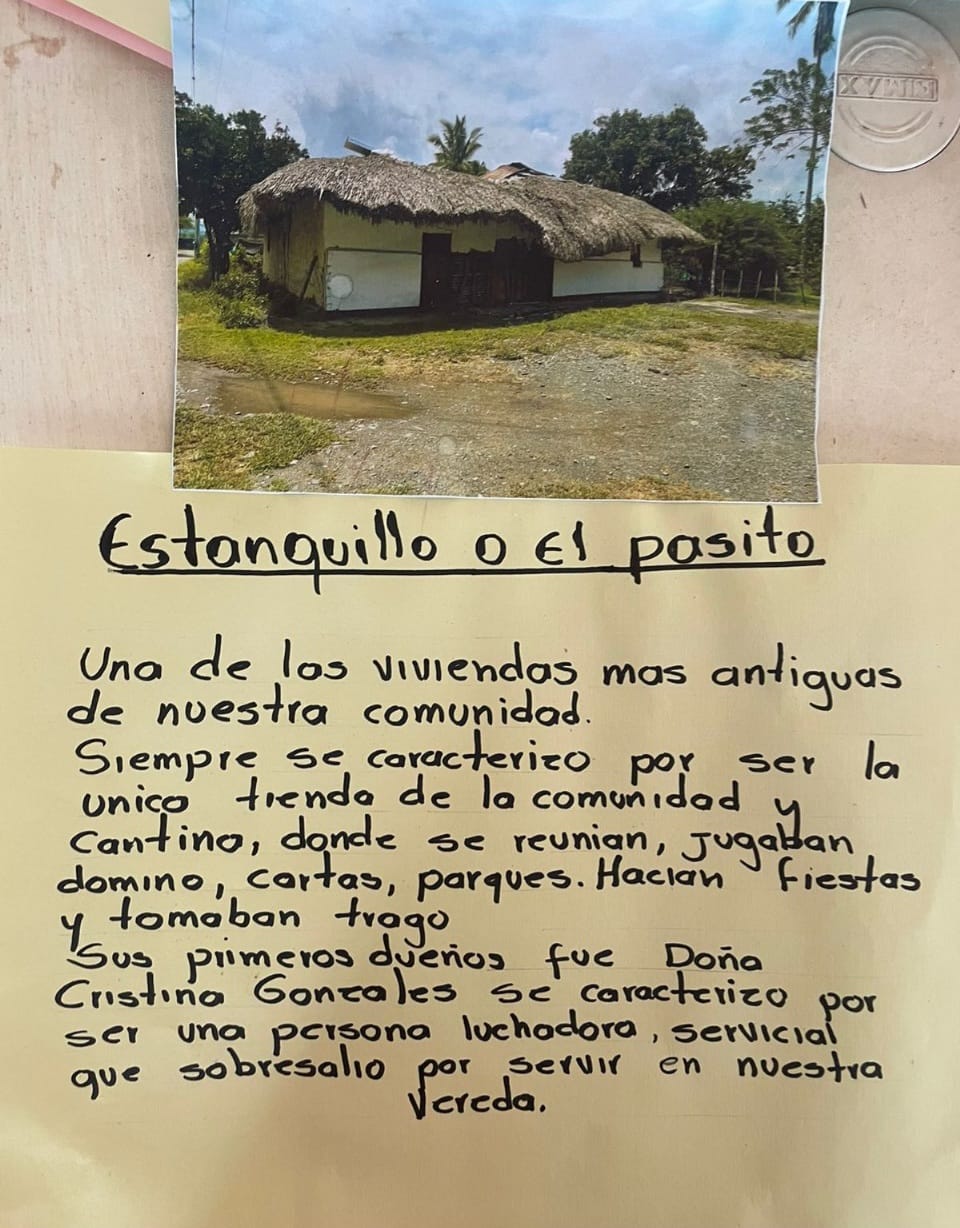 RIMAX
Estanquillo o El pasito
Una de las viviendas mas antiguas
de nuestra comunidad.
Siempre se caracterizo por ser la
unica tienda de la comunidad y
Cantina, donde se reunian, jugaban
domino, cartas, parques. Hacian fiestas
y tomaban trago
Sus primeros dueños fue Doña
Cristina Gonzales se caracterizo por
ser una persona luchadora, servicial
que sobresalio por servir en nuestra
Vereda.